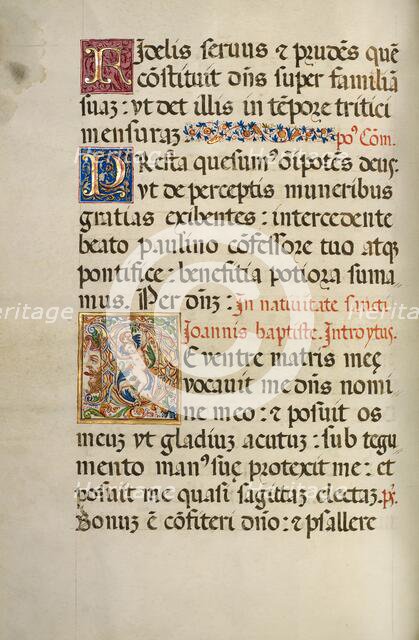 Fidelis seruus ⁊ prudēs quē
cōstituit dn̄s super familiā
suaꝫ: vt det illis in tēpore tritici
mensuraꝫ pꝰ Com̄.
Presta quesumꝰ oīpotēs deus:
vt de perceptis muneribus
gratias exibentes: intercedente
beato paulino cōfessore tuo atqꝫ
pontifice: benefitia potiora suma
mus. Per dn̄ꝫ: In natiuitate sancti
Joannis baptiste. Introytus.
De ventre matris meę
vocauit me dn̄s nomi
ne meo: ⁊ posuit os
meuꝫ vt gladiuꝫ acutuꝫ: sub tegu
mento manꝰ suę protexit me: et
posuit me quasi sagittaꝫ electaꝫ. pṡ.
Bonuꝫ ē cōfiteri dn̄o: ⁊ psallere
Heritage
Images